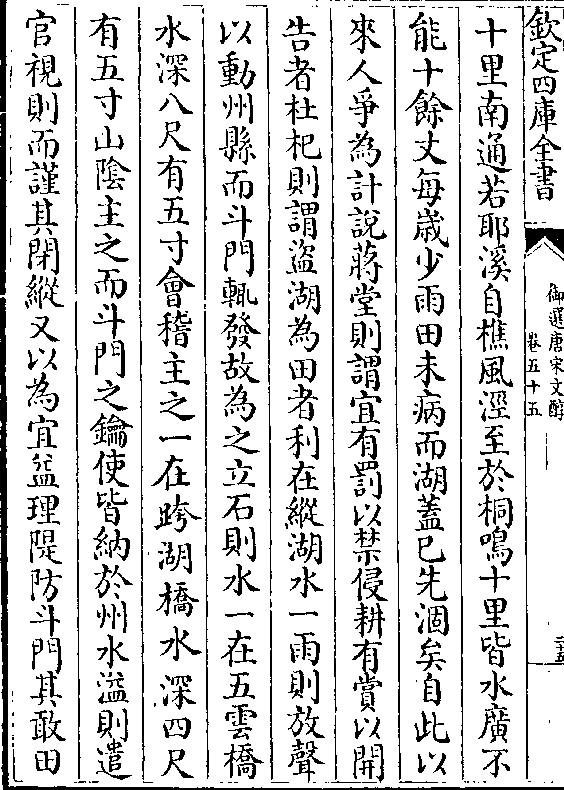 欽定四庫全書
御選唐宋文醇
卷五十五
十里南通若耶溪自樵風涇至於桐鳴十里皆水廣不
能十餘丈每歲少雨田未病而湖蓋已先涸矣自此以
來人爭為計說蔣堂則謂宜有罰以禁侵耕有賞以開
告者杜杞則謂盜湖為田者利在縱湖水一雨則放聲
以動州縣而斗門輒發故為之立石則水一在五雲橋
水深八尺有五寸會稽主之一在跨湖橋水深四尺
有五寸山陰主之而斗門之鑰使皆納於州水溢則遣
官視則而謹其閉縱又以為宜益理隄防斗門其敢田